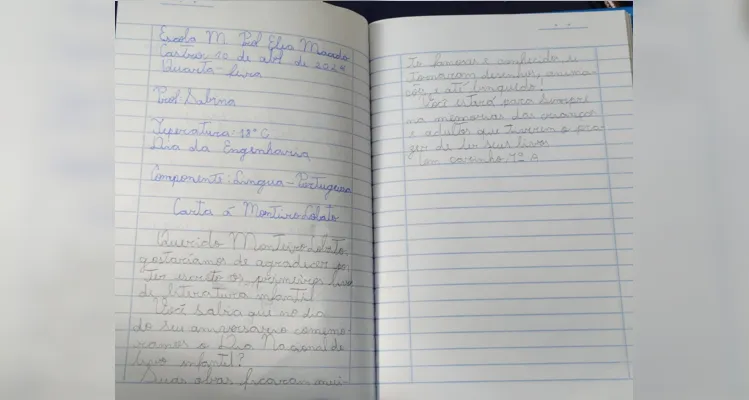 Escola M. Prof Elza Macedo
Castro, 10 de abl de 2024
Quarta-feira
Prof Sabrina
Temperatura: 18° C
Dia da Engenharia
Componente: Língua-Portuguesa
Carta á Monteiro Lobato
Querido Monteiro Lobato,
gostaríamos de agradecer por
ter escrito os primeiros livros
de literatura infantil
Você sabia que no dia
do seu aniversário comemo-
ramos o Dia Nacional do
livro infantil?
Suas obras ficaram mui-
to famosas e conhecidas, se
tornaram desenhos, anima-
ções e até
Você estará para sempre
na memorias das crianças
e adultos que tiverem o pra-
zer de ler seus livros
Com carinho, A